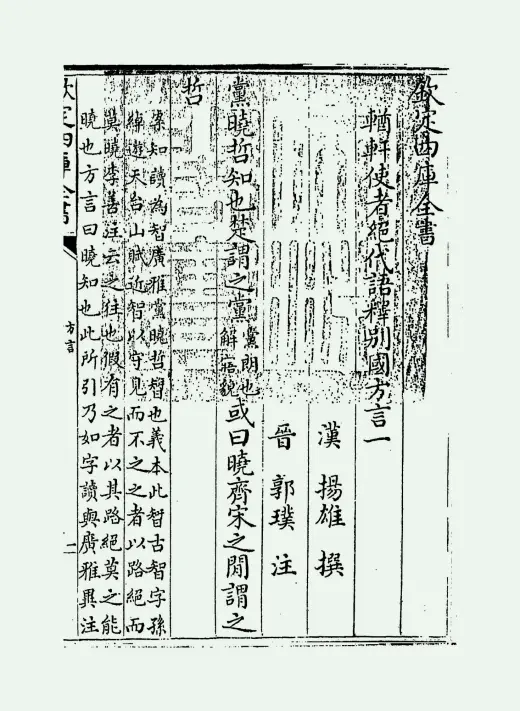 欽定四庫全書
輶軒使者絕代語釋別國方言一
漢 揚雄 撰
晉 郭璞 注
黨曉哲知也楚謂之黨黨朗也解寤貌或曰曉齊宋之閒謂之
哲
案知讀為智廣雅黨曉哲智也義本此智古智字孫
綽遊天台山賦近智以守見而不之之者以路絕而
莫曉李善注云之往也假有之者以其路絕莫之能
曉也方言曰曉知也此所引乃如字讀與廣雅異注
欽定四庫全書
方言
一